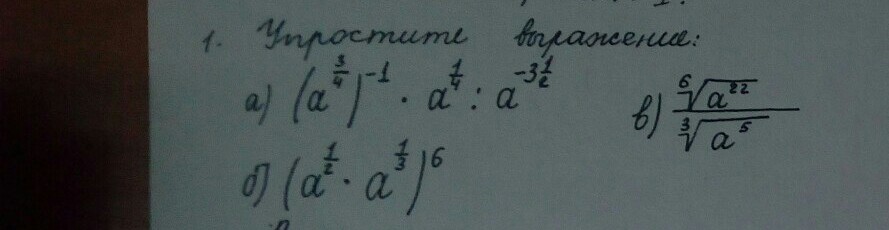 1. Упростите выражение:
а) (a^{\frac{3}{4}})^{-1} · a^{\frac{1}{4}} : a^{-3\frac{1}{2}}
б) (a^{\frac{1}{2}} · a^{\frac{1}{3}})^6
в) \frac{\sqrt[6]{a^{22}}}{\sqrt[3]{a^5}}